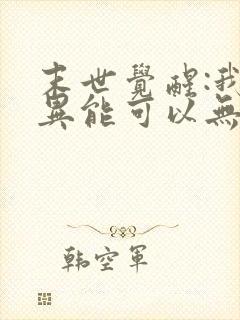 末世覺醒:我
異能可以無
韩空軍